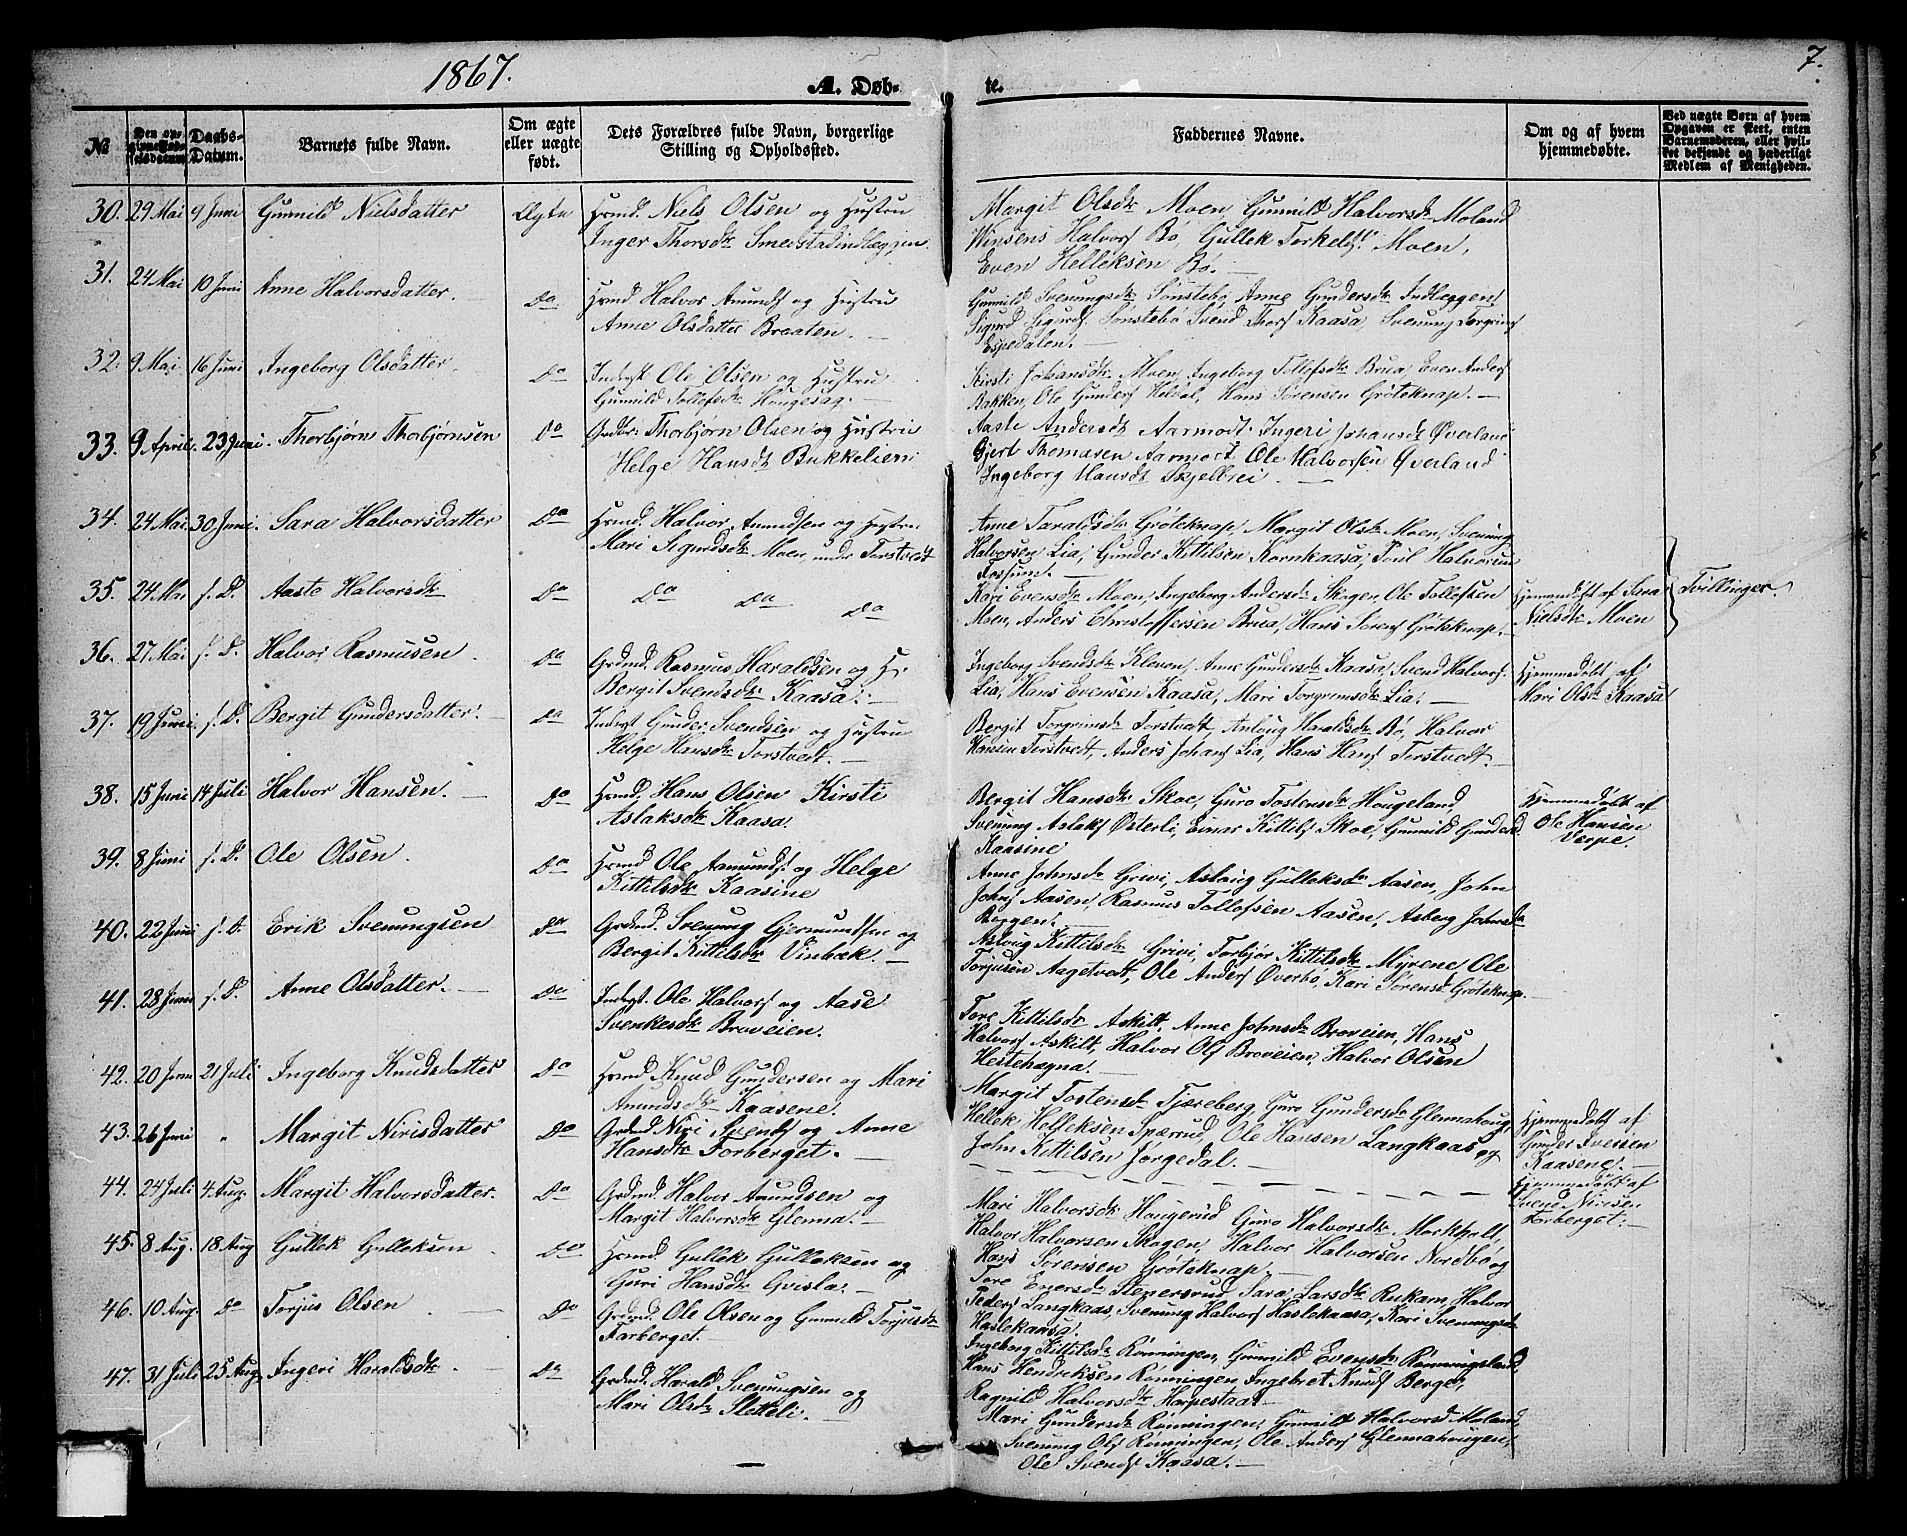 1867.
A. Døb-
te.
7.
№
Den op-
givne Fød-
selsdatum.
Daabs-
Datum.
Barnets fulde Navn.
Om ægte
eller uægte
født.
Dets Forældres fulde Navn, borgerlige
Stilling og Opholdssted.
Faddernes Navne.
Om og af hvem
hjemmedøbte.
Ved uægte Børn af hvem
Opgaven er skeet, enten
Barnemoderen, eller hvil-
ket bekjendt og hæderligt
Medlem af Menigheden.
30. 29 Mai 9 Juni Gunnild Nielsdatter Ægte Hsmd. Niels Olsen og Hustru
Inger Thorsdtr Smedstadindlæggjen
Margit Olsdtr Moen, Gunnild Halvorsdt Moland
Halvors Bø, Gullek Torkels Moen,
Even Helleksen Bø.
31. 24 Mai 10 Juni Anne Halvorsdatter. Do. Hsmd Halvor Amunds og Hustru
Anne Olsdatter Braaten.
Gunnild Svenungsdtr Sønstebø, Anne Gundersdtr Indlæggen
Sigurd Sigurds Sønstebø Svend Thors Kaasa, Svenung Torgrims
Espedalen.
32. 9 Mai 16 Juni Ingeborg Olsdatter. Do Inderst Ole Olsen og Hustru
Gunnild Tollefsdtr Hougesag.
Kirsti Johansdtr Moen, Ingeborg Tollofsdtr Brua, Even Anders
Bakken, Ole Gunders Heldal, Hans Sørensen Grøteknap.
33. 9 April. 23 Juni. Thorbjørn Thorbjørnsen Do Grdbr. Thorbjørn Olsen og Hustru
Helge Hansdt Bukkelien
Aaste Andersdt Aarmodt. Ingeri Johansdt Øverland
Gjert Thomasen Aarmodt Ole Halvorsen Øverland
Ingeborg Hansdt Skjelbrei.
34. 24 Mai 30 Juni. Sara Halvorsdatter Do Hsmd. Halvor Amundsen og Hustru
Mari Sigurdsdtr Moen, under Torstvedt
Anne Taraldsdtr Grøteknap, Margit Olsdtr Moen, Svenung
Halvorsen Lia, Gunder Kittilsen Kornkaasa, Povl Halvorsen
Fossum.
35. 24 Mai s. D. Aaste Halvorsdtr Do Do Do Do
Kari Evensdtr Moen, Ingeborg Andersdtr Skogen, Ole Tollofsen
Moen, Anders Christoffersen Brua, Hans Sørens Grøteknap.
Hjemmedøbt af Sara
Nielsdtr Moen
Tvillinger.
36. 27 Mai s. D. Halvor Rasmusen Do Grdmd. Rasmus Haraldsen og H.
Bergit Svendsdtr Kaasa.
Ingeborg Svendsdtr Kleven, Anne Gundersdtr Kaasa, Svend Halvors
Lia, Hans Evensen Kaasa, Mari Torgrimsdtr Lia.
Hjemmedøbt af
Mari Olsdtr Kaasa
37. 19 Juni s. D. Bergit Gundersdatter. Do Inderst Gunder Svendsen og Hustru
Helge Hansdtr Torstvedt.
Bergit Torgrimsdtr Torstvedt, Anlaug Haraldsdtr Bø, Halvor
Hansen Torstvedt, Anders Johans Lia, Hans Hans Torstvedt.
38. 15 Juni 14 Juli Halvor Hansen. Do Hsmd. Hans Olsen Kirsti
Aslaksdtr Kaasa.
Bergit Hansdtr Skoe, Guro Tostensdtr Hougeland,
Svenung Aslaks Østerli, Einar Kittils Skoe, Gunnild Gundersd.
Kaasine
Hjemmedøbt af
Ole Hansen
Verpe.
39. 8 Juni s. D. Ole Olsen. Do Hsmd Ole Aamunds og Helge
Kittilsdtr Kaasine
Anne Johnsdtr Grivi, Aslaug Gulleksdtr Aasen, John
Johns Aasen, Rasmus Tollofsen Aasen, Asberg Johnsdtr
Bergen.
40. 22 Juni s. D. Erik Svenungsen Do Grdmd. Svenung Gjermundsen og
Bergit Kittilsdtr Vinbæk.
Aslaug Kittilsdtr Grivi, Torbjør Kittilsdtr Myrene Ole
Torjusen Aagetvedt, Ole Anders Øverbø, Kari Sørensd Grøteknap.
41. 28 Juni s. D. Anne Olsdatter. Do Indgst. Ole Halvors og Aase
Svenkesdtr Broveien.
Tore Kittilsdtr Askilt, Anne Johnsdtr Broveien, Hans
Halvors Askilt, Halvor Ols Broveien, Halvor Olsen
Hestehagna.
42. 20 Juni 21 Juli Ingeborg Knudsdatter Do Hsmd Knud Gundersen og Mari
Amundsdtr Kaasene.
Margit Tostensdtr Tjæreberg, Guro Gundersdtr Glennahoug,
Hellek Helleksen Spærrud, Ole Hansen Langkaas og
John Kittilsen Jørgedal.
Hjemmedøbt af
Gunder Iversen
Kaasene.
43. 26 Juni " Margit Nirisdatter Do Grdmd Niri Svends og Anne
Hansdtr Forberget.
Hjemmedøbt af
Svend Nirisen
Forberget.
44. 24 Juli 4 Aug. Margit Halvorsdatter. Do Grdmd. Halvor Amundsen og
Margit Halvorsdtr Glenna.
Mari Halvorsdtr Hougerud Guro Halvorsdtr Morkholt,
Halvor Halvorsen Skogen, Halvor Halvorsen Nordbø og
Hans Sørensen Grøteknap.
45. 8 Aug. 18 Aug Gullek Gulleksen Do Hsmd Gullek Gulleksen og
Guri Hansdtr Gvisla.
Tore Enersdtr Stenersrud, Sara Larsdtr Rukam, Halvor
Peders Langkaas, Svenung Halvors Haslekaasa, Kari Svenungsdtr
Haslekaasa.
46. 10 Aug. Do Torjus Olsen Do Grdmd. Ole Olsen og Gunnild Torjusdtr
Aarberget.
Ingeborg Kittilsdtr Rønningen, Gunnild Evensdtr Rønningsland,
Hans Hendriksen Rønningen Ingebret Knuds Berge,
Ragnild Halvorsdtr Harpestad
47. 31 Juli 25 Aug. Ingeri Haraldsdtr. Do Grdmd. Harald Svenungsen og
Mari Olsdtr Sletteli.
Mari Gundersdtr Rønningen, Gunnild Halvorsd Moland,
Svenung Ols Rønningen, Ole Anders Glennahougen,
Ole Svends Kaasa.